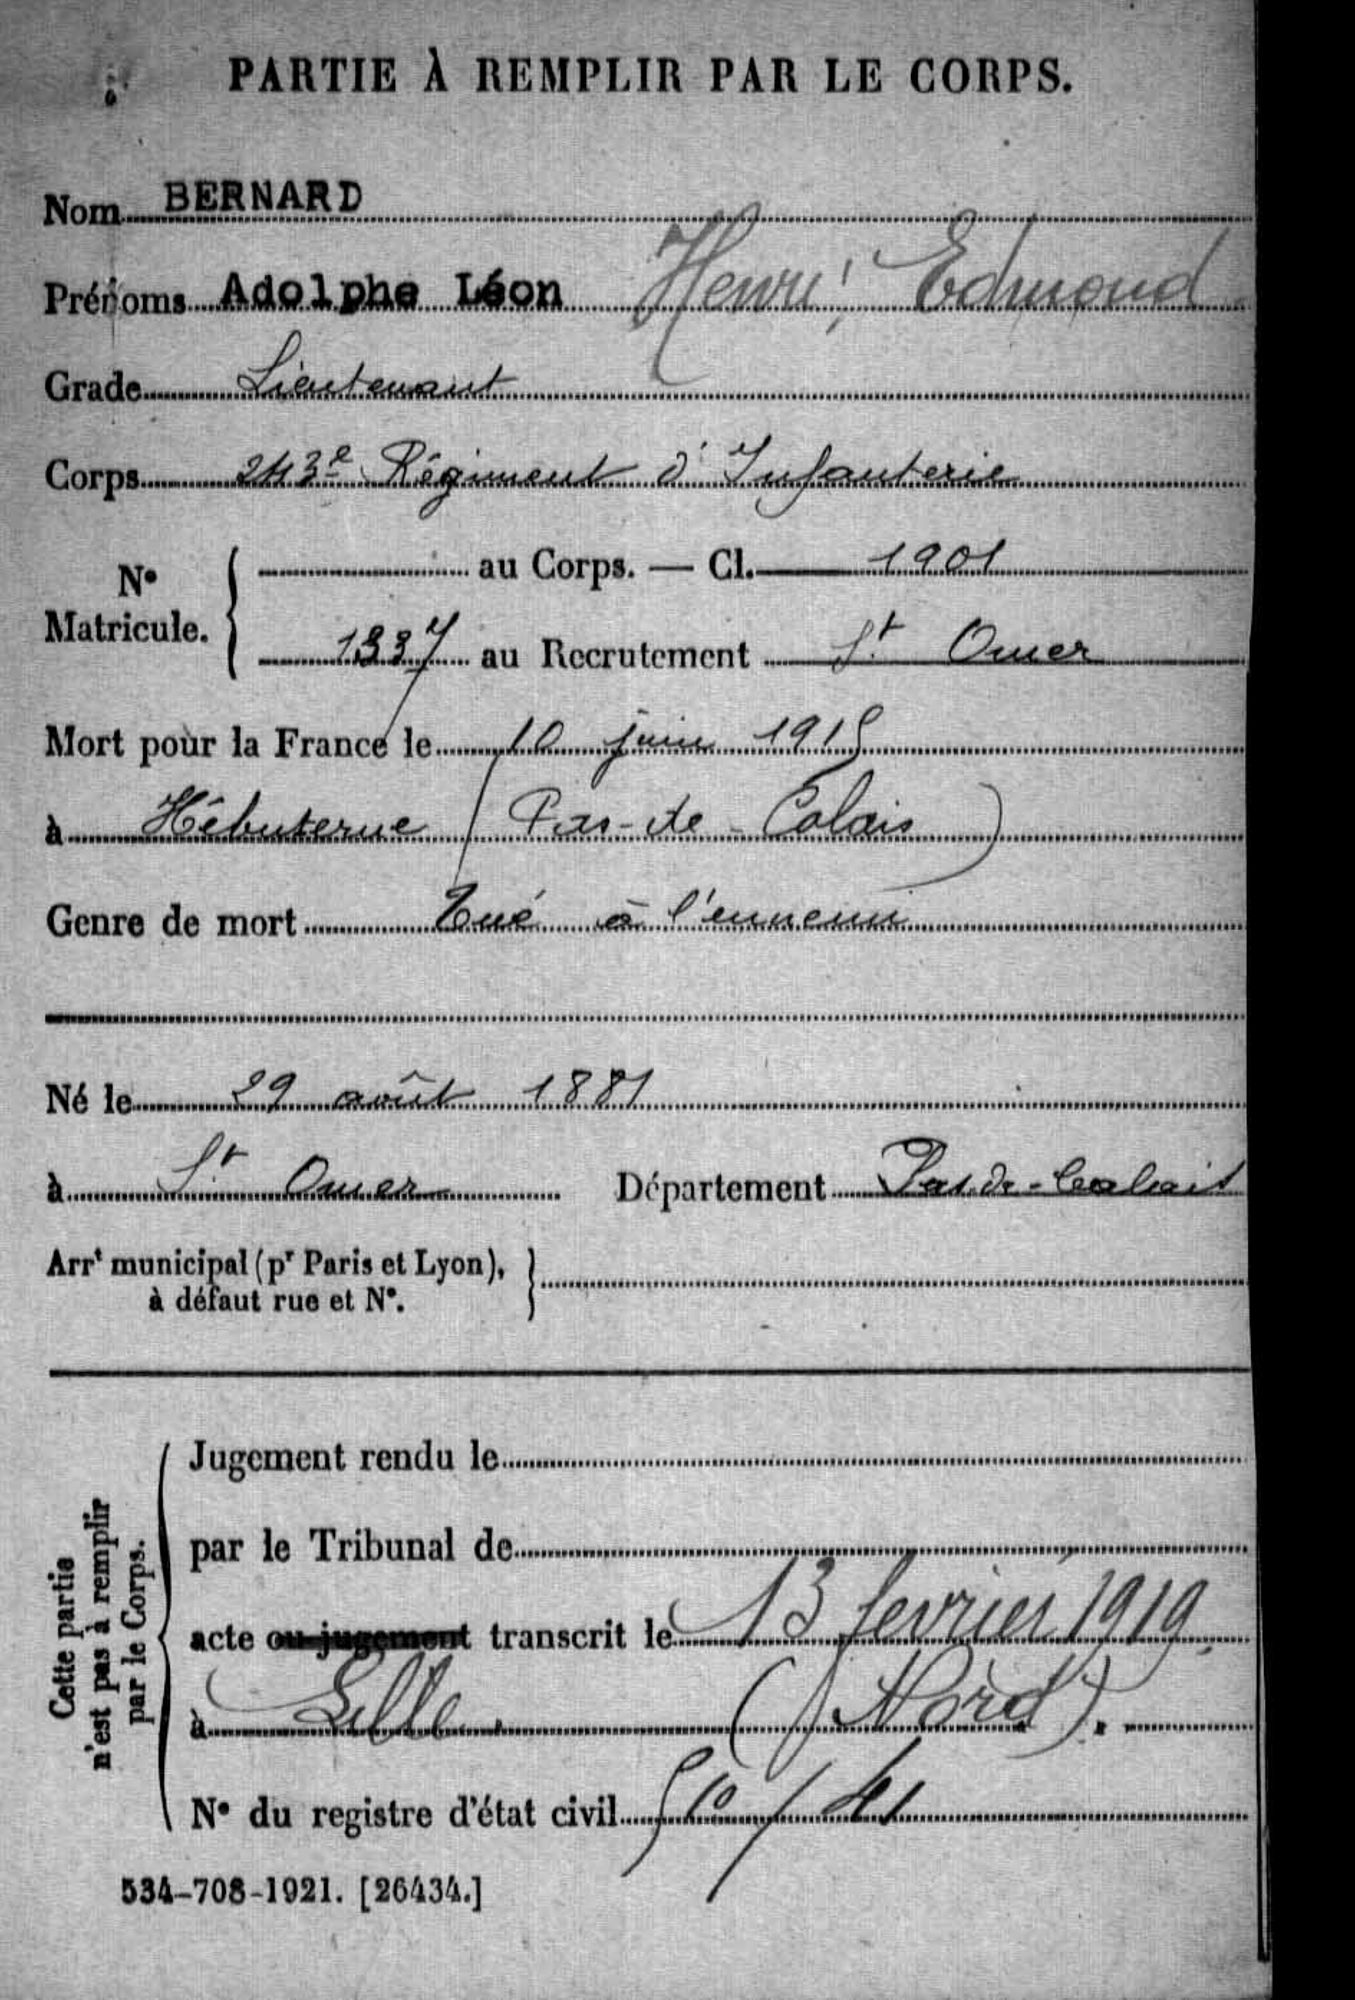 PARTIE À REMPLIR PAR LE CORPS.
Nom BERNARD
Prénoms Adolphe Léon Henri, Edmond
Grade Lieutenant
Corps 243e Régiment d'Infanterie
N° Matricule. au Corps. — Cl. 1901
1337 au Recrutement St Omer
Mort pour la France le 10 juin 1915
à Hébuterne (Pas-de-Calais)
Genre de mort Tué à l'ennemi
Né le 29 août 1881
à St Omer Département Pas-de-Calais
Arrt municipal (pr Paris et Lyon),
à défaut rue et N°.
Cette partie
n'est pas à remplir
par le Corps.
Jugement rendu le
par le Tribunal de
acte ou jugement transcrit le 13 février 1919.
à Lille (Nord).
N° du registre d'état civil
534-708-1921. [26434.]